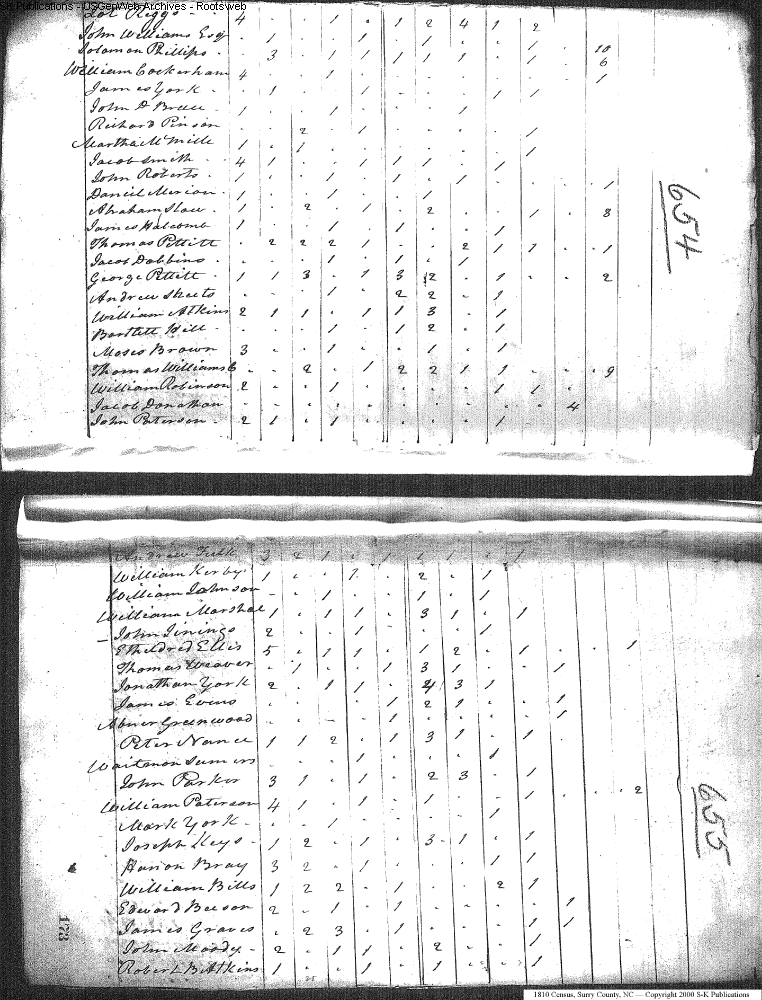 S-K Publications - USGenWeb Archives - Rootsweb
Lot Riggs 4 . . 1 . 1 2 4 1 2
John Williams Esq . 1 . . 1 . 1 . . 1 . 10
Solomon Phillips . 3 . 1 1 1 1 1 . 1 . 6
William Cockerham 4 . . 1 . . . . . . . 1
James York . 1 . . 1 . . . 1 1
John D Bruce 1 . . 1 . . . 1
Richard Pinson . . 2 . 1 . . . . 1
Martha Mc Mille 1 . 1 . . . . . . 1
Jacob Smith 4 1 . . 1 1 1 . 1
John Roberts 1 . . 1 . 1 . 1 . . . 1
Daniel Merion 1 . . 1 . . 1
Abraham Slow 1 . 2 . 1 . 2 . . 1 . 8
James Halcomb 1 . . 1 . 1 . . 1
Thomas Pettitt . 2 2 2 1 . . 2 1 1 . 1
Jacob Dobbins . . . 1 . 1 . 1
George Pettitt 1 1 3 . 1 3 2 . 1 . . 2
Andrew Skeets . . . 1 . 2 2 . 1
William Atkins 2 1 1 . 1 1 3 . 1
Bartlett Hill . . . 1 . 1 2 . 1
Moses Brown 3 . . 1 . . 1 . 1
Thomas Williams . . 2 . 1 2 2 1 1 . . 9
William Robinson 2 . . 1 . . . . 1 1
Jacob Donathan . . . . . . . . . . 4
John Paterson 2 1 . 1 . . . . 1
654
Andrew Fulk 3 2 1 . 1 1 1 . 1
William Kerby 1 . . 1 . 2 . 1
William Johnson . . 1 . . 1 . 1
William Marshal 1 . 1 1 . 3 1 . 1
John Jinings 2 . . 1 . . . 1
Ethildred Ellis 5 . 1 1 . 1 2 . 1 . . 1
Thomas Weaver . 1 . . 1 3 1 . . 1
Jonathan York 2 . 1 1 . 4 3 1
James Evins . . . . 1 2 1 . . 1
Abner Greenwood . . . . 1 . . . . 1
Peter Nance 1 1 2 . 1 3 1 . 1
Waitmon Sumers . . . 1 . . . 1
John Parker 3 1 . 1 . 2 3 . 1
William Paterson 4 1 . 1 . 1 . . 1 . . 2
Mark York . . 1 . . . . 1
Joseph Keys 1 2 . 1 . 3 1 . 1
Harison Bray 3 2 . 1 . . . 1 1
William Bills 1 2 2 . 1 . . 2 1
Edward Beeson 2 . 1 . 1 . . . . 1
James Graves . 2 3 . 1 . . . 1 1
John Moody 2 . 1 1 . 2 . . 1
Robert B Atkins 1 . . 1 . 1 . . 1
655
173
1810 Census, Surry County, NC — Copyright 2000 S-K Publications